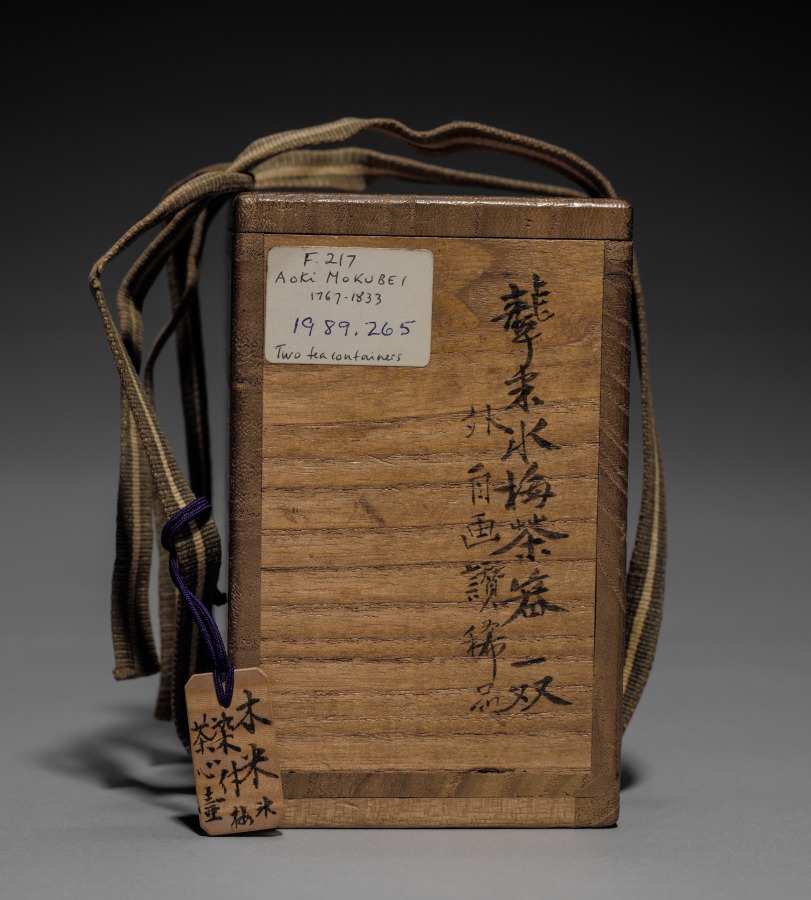 F. 217
Aoki MokuBEI
1767-1833
1989.265
Two tea containers
聾米氷梅茶容一双
外自画讃稀品
木米
氷梅
染付
茶心壺